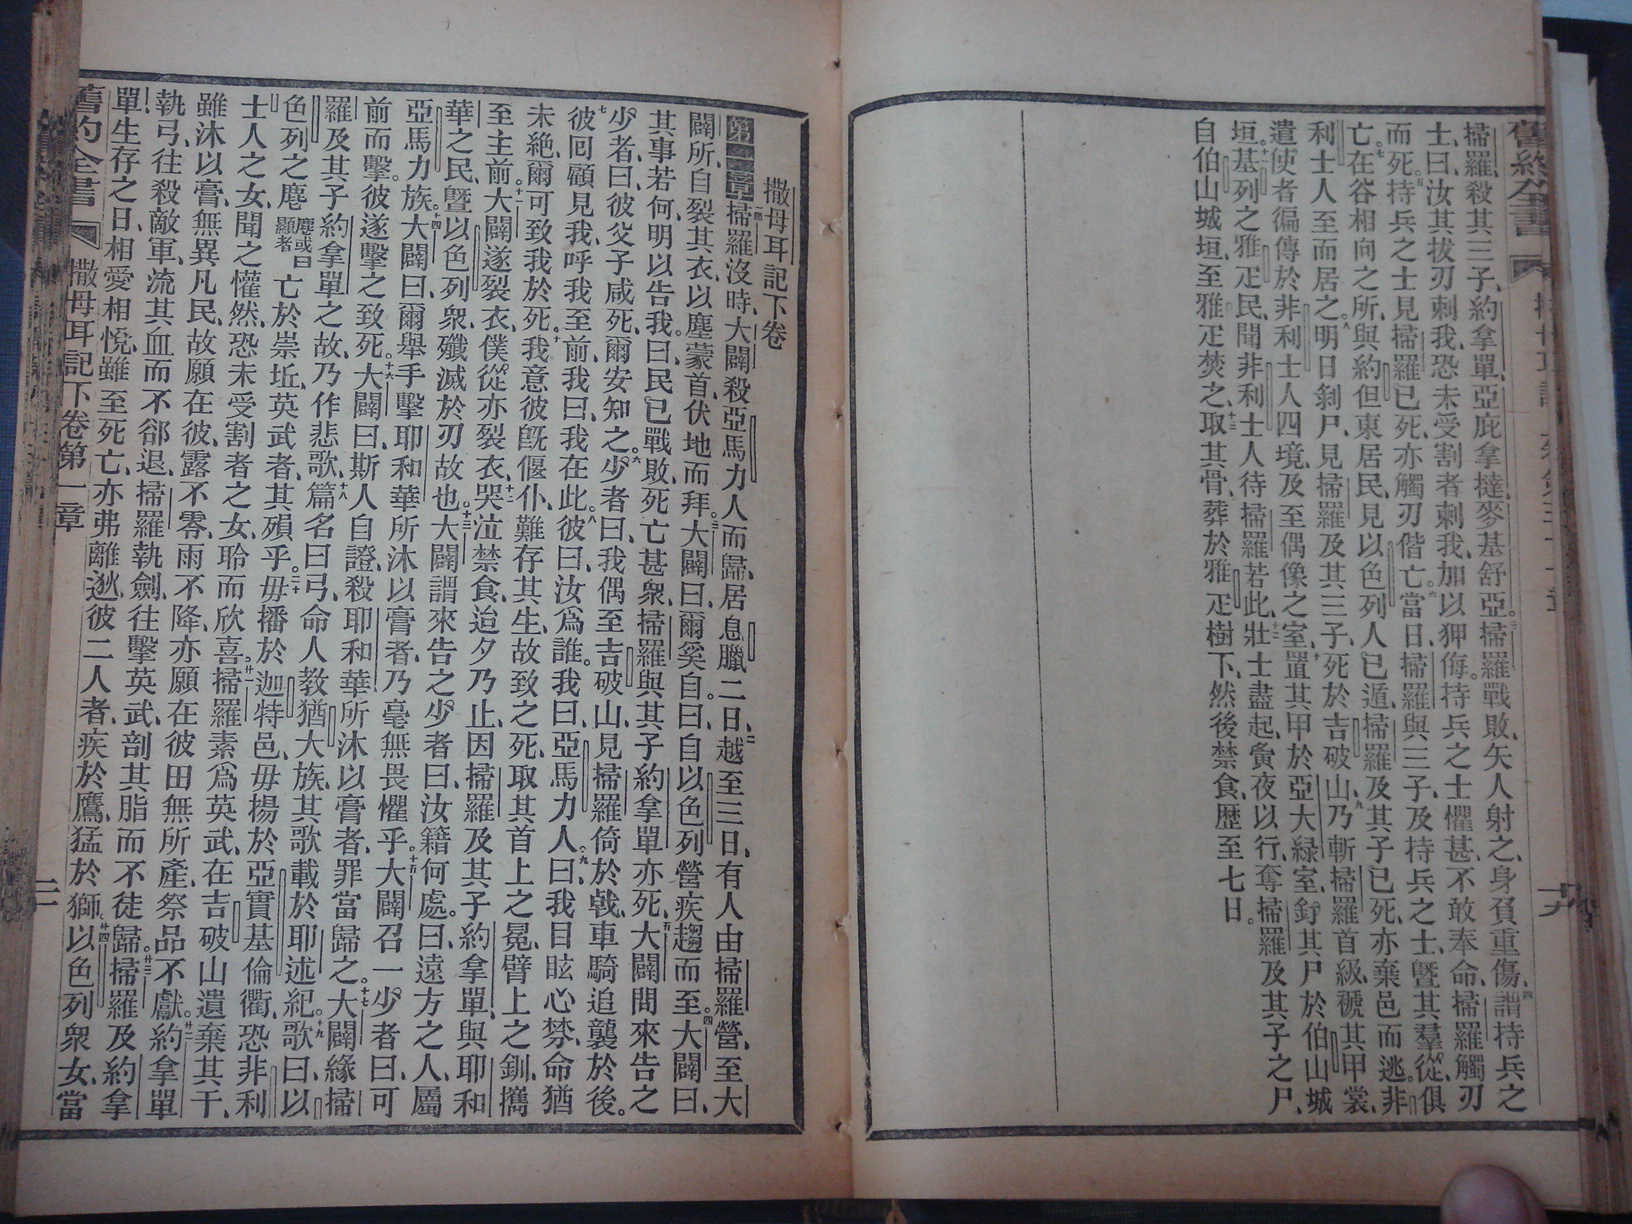 舊約全書
掃羅殺其三子、約拿單、亞庇拿撻、麥基舒亞。三掃羅戰敗、矢人射之、身負重傷、四謂持兵之
士曰、汝其拔刃刺我、恐未受割者刺我、加以狎侮。持兵之士懼甚、不敢奉命、掃羅觸刃
而死。五持兵之士見掃羅已死、亦觸刃偕亡。六當日掃羅與三子、及持兵之士、曁其羣從、俱
亡。七在谷相向之所、與約但東居民、見以色列人已遁、掃羅及其子已死、亦棄邑而逃。非
利士人至而居之。八明日剝尸、見掃羅及其三子、死於吉破山。九乃斬掃羅首級、褫其甲裳、
遣使者徧傳於非利士人四境、及至偶像之室、十置其甲於亞大緑室、釘其尸於伯山城
垣。十一基列之雅疋民、聞非利士人待掃羅若此、十二壯士盡起、夤夜以行、奪掃羅及其子之尸、
自伯山城垣、至雅疋焚之、十三取其骨葬於雅疋樹下、然後禁食、歷至七日。
撒母耳記下卷
第一章掃羅沒時、大闢殺亞馬力人而歸、居息臘二日、二越至三日、有人由掃羅營、至大
闢所、自裂其衣、以塵蒙首、伏地而拜。三大闢曰、爾奚自。曰、自以色列營疾趨而至。四大闢曰、
其事若何、明以告我。曰、民已戰敗、死亡甚衆、掃羅與其子約拿單亦死。五大闢問來告之
少者曰、彼父子咸死、爾安知之。六少者曰、我偶至吉破山、見掃羅倚於戟、車騎追襲於後。
七彼囘顧見我、呼我至前、我曰、我在此。八彼曰、汝爲誰。我曰、亞馬力人。九曰、我目眩心棼、命猶
未絶、爾可致我於死。十我意彼旣偃仆、難存其生、故致之死、取其首上之冕、臂上之釧、攜
至主前。十一大闢遂裂衣、僕從亦裂衣、十二哭泣禁食、迨夕乃止、因掃羅及其子約拿單、與耶和
華之民、曁以色列衆、殲滅於刃故也。十三大闢謂來告之少者曰、汝籍何處。曰、遠方之人、屬
亞馬力族。十四大闢曰、爾舉手擊耶和華所沐以膏者、乃毫無畏懼乎。十五大闢召一少者曰、可
前而擊。彼遂擊之致死。十六大闢曰、斯人自證殺耶和華所沐以膏者、罪當歸之。十七大闢緣掃
羅及其子約拿單之故、乃作悲歌、十八篇名曰弓、命人教猶大族、其歌載於耶述紀。十九歌曰、以
色列之麀麀或曰顯者亡於崇坵、英武者其殞乎。二十毋播於迦特邑、毋揚於亞實基倫衢、恐非利
士人之女、聞之懽然、恐未受割者之女、聆而欣喜。廿一掃羅素爲英武、在吉破山遺棄其干、
雖沐以膏、無異凡民、故願在彼、露不零、雨不降、亦願在彼田無所產、祭品不獻。廿二約拿單
執弓、往殺敵軍、流其血而不郤退、掃羅執劍、往擊英武、剖其脂而不徒歸。廿三掃羅及約拿
單、生存之日、相愛相悅、雖至死亡、亦弗離逖、彼二人者、疾於鷹、猛於獅。廿四以色列衆女、當
舊約全書 撒母耳記下卷第一章 二